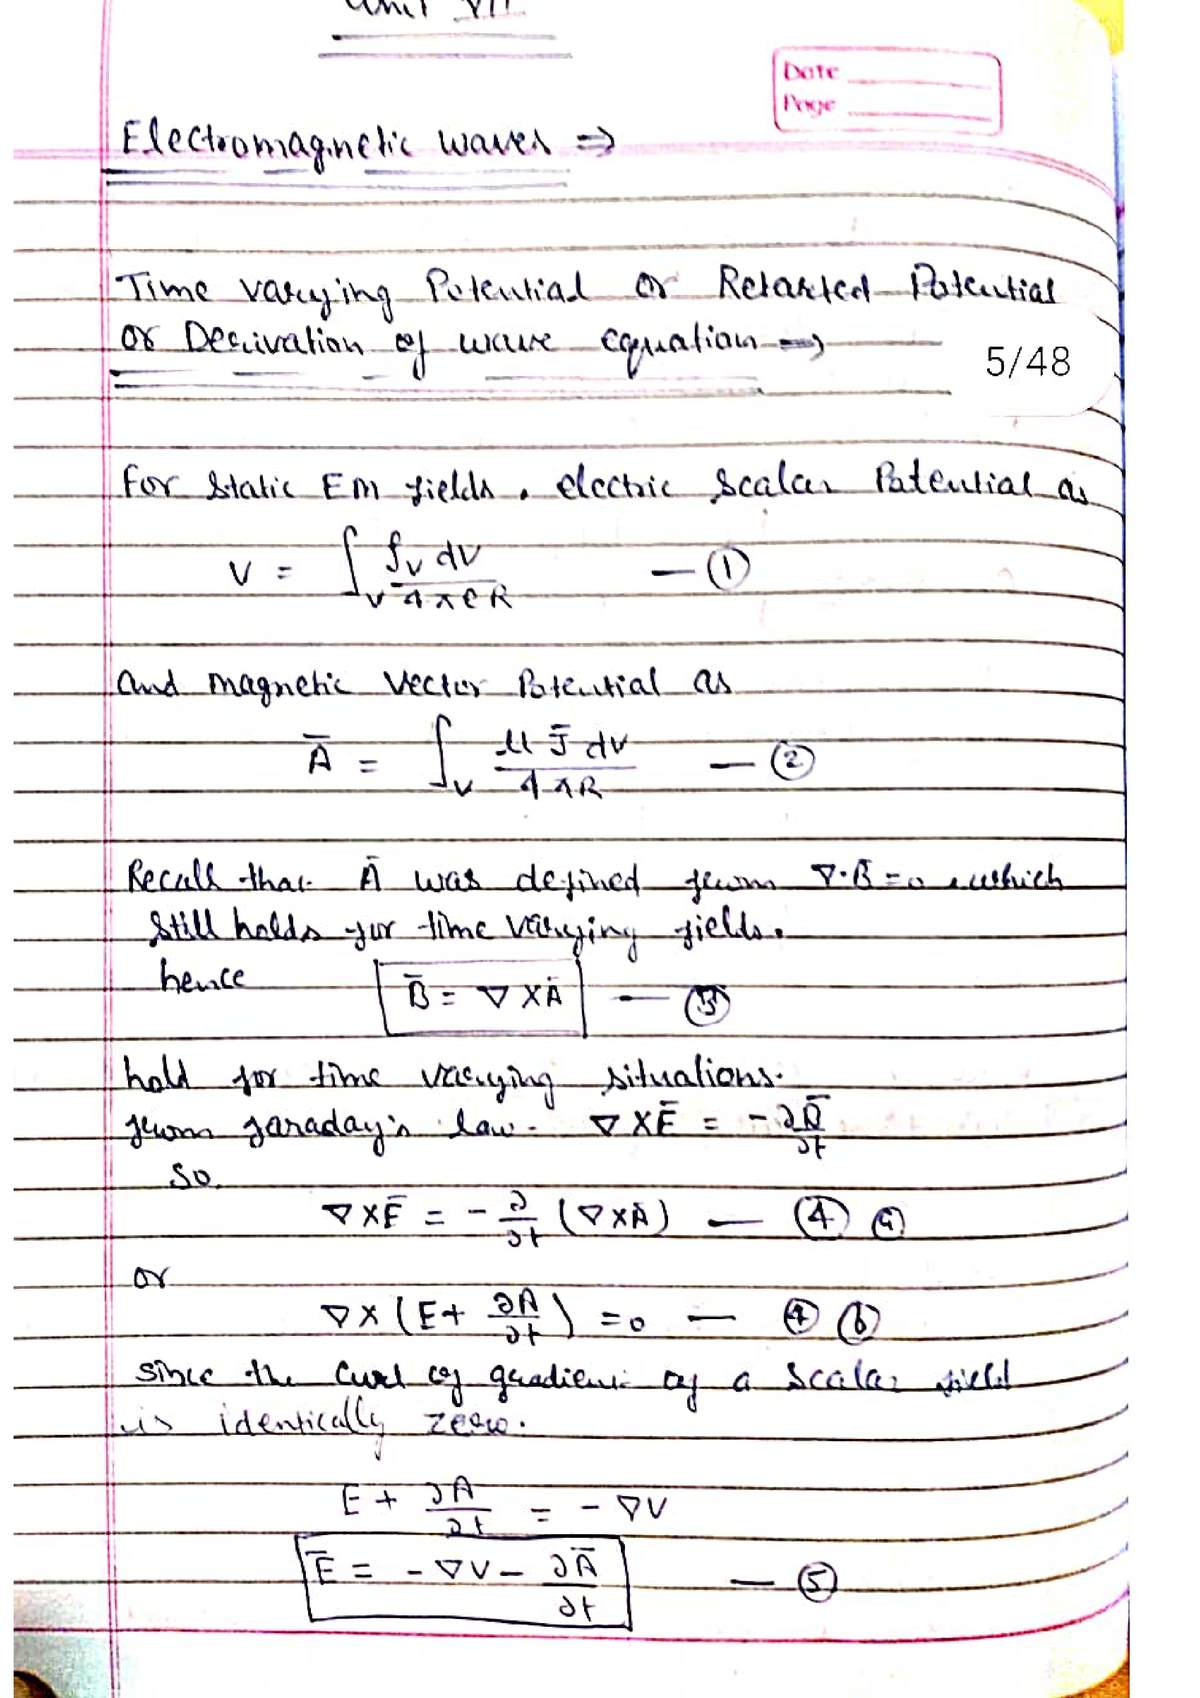 Unit VII
Date
Page
Electromagnetic waves ⇒
Time varying Potential or Retarted Potential
or Derivation of wave equation ⇒
5/48
For static EM fields, electric scalar Potential as
V = ∫v ρv dv / 4πεR — ①
and magnetic vector Potential as
Ā = ∫v μ J̄ dv / 4πR — ②
Recall that Ā was defined from ∇·B̄ = 0 which
still holds for time varying fields.
hence B̄ = ∇×Ā — ③
hold for time varying situations.
from faraday's law. ∇×Ē = -∂B̄/∂t
So
∇×Ē = -∂/∂t (∇×Ā) — ④ ⓐ
or
∇×(E + ∂A/∂t) = 0 — ④ ⓑ
since the curl of gradient of a scalar field
is identically zero.
E + ∂A/∂t = - ∇V
Ē = - ∇V - ∂Ā/∂t — ⑤